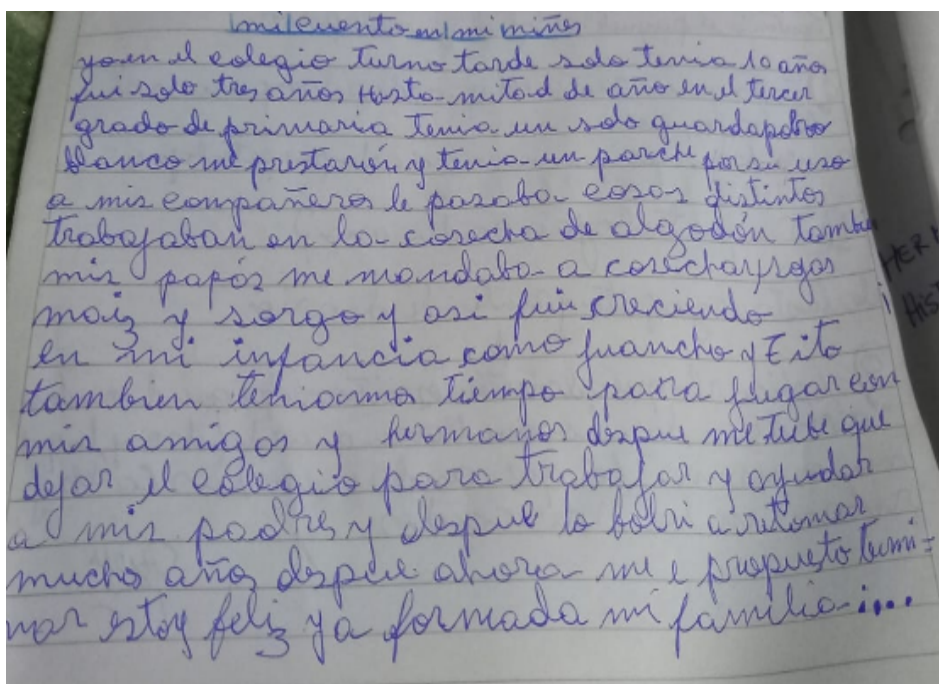 mi cuento en mi niñes
yo en el colegio turno tarde solo tenia 10 años
fui solo tres años Hasta mitad de año en el tercer
grado de primaria tenia un solo guardapolvo
blanco me prestarón y tenia un parche por su uso
a mis compañeros le pasaba cosas distintos
trabajaban en la cosecha de algodón tambien
mis papás me mandaba a cosechar
maiz y sorgo y asi fui creciendo
en mi infancia como Juancho y Tito
tambien teniamos tiempo para jugar con
mis amigos y hermanos despue me tube que
dejar el colegio para trabajar y ayudar
a mis padres y despue lo bolvi a retomar
mucho años despue ahora me e propuesto termi=
nar estoy feliz ya formada mi familia i...
HER
HIS